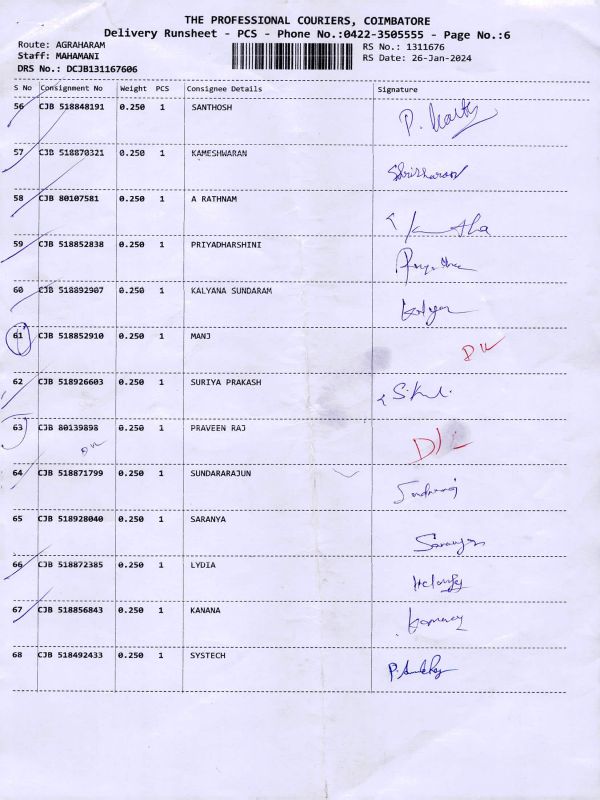 THE PROFESSIONAL COURIERS, COIMBATORE
Delivery Runsheet - PCS - Phone No.:0422-3505555 - Page No.:6
Route: AGRAHARAM
Staff: MAHAMANI
DRS No.: DCJB131167606
RS No.: 1311676
RS Date: 26-Jan-2024
S No Consignment No Weight PCS Consignee Details Signature
56 CJB 518848191 0.250 1 SANTHOSH
57 CJB 518870321 0.250 1 KAMESHWARAN
58 CJB 80107581 0.250 1 A RATHNAM
59 CJB 518852838 0.250 1 PRIYADHARSHINI
60 CJB 518892907 0.250 1 KALYANA SUNDARAM Kalyan
61 CJB 518852910 0.250 1 MANJ
62 CJB 518926603 0.250 1 SURIYA PRAKASH
63 CJB 80139898 0.250 1 PRAVEEN RAJ
64 CJB 518871799 0.250 1 SUNDARARAJUN
65 CJB 518928040 0.250 1 SARANYA
66 CJB 518872385 0.250 1 LYDIA
67 CJB 518856843 0.250 1 KANANA
68 CJB 518492433 0.250 1 SYSTECH